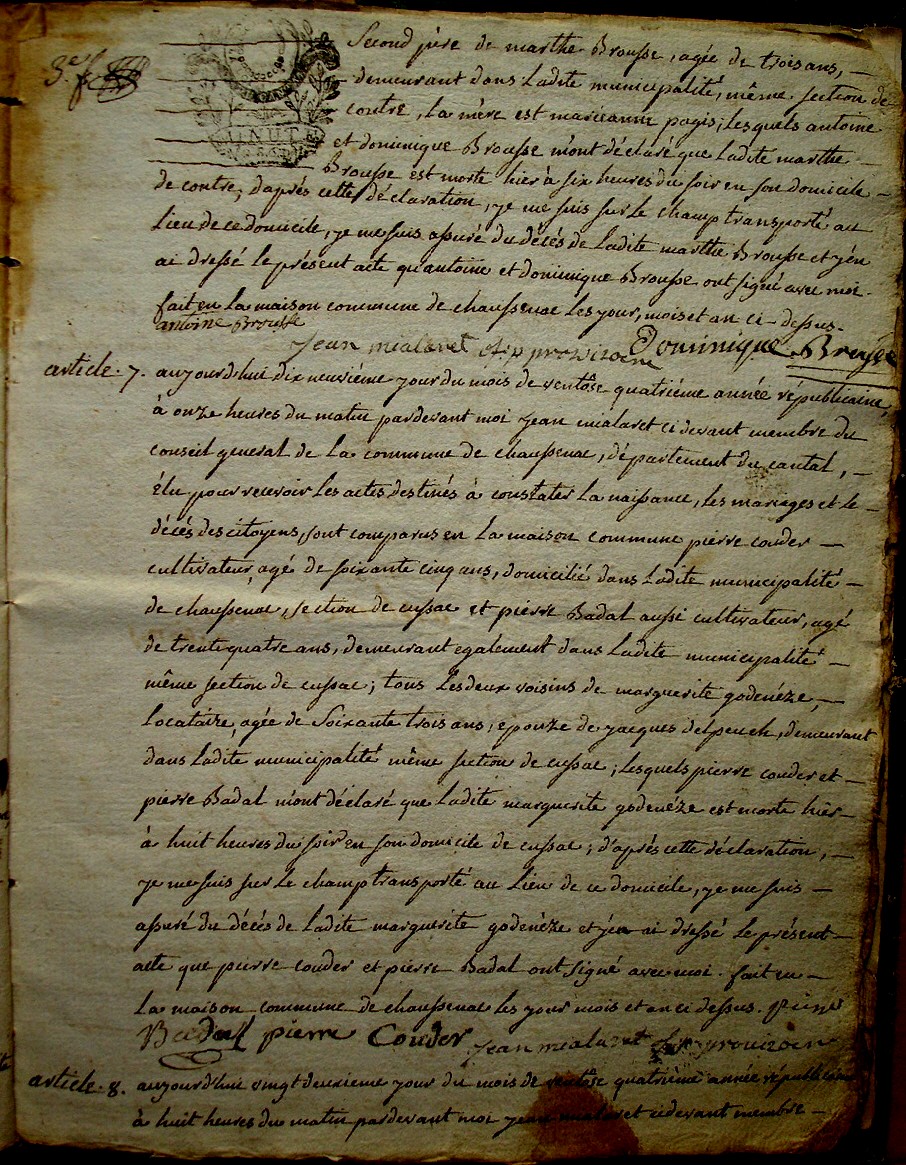 3.e f
Second père de marthe Brousse, agée de trois ans, —
demeurant dans Ladite municipalité, même section de
contre, La mère est marianne pagis; lesquels antoine
et dominique Brousse m'ont déclaré que Ladite marthe —
Brousse est morte hier à six heures du soir en son domicile —
de contre; d'après cette déclaration, je me suis sur Le champ transporté au
Lieu de ce domicile, je me suis assuré du décés de Ladite marthe Brousse et j'en
ai dressé le présent acte qu'antoine et dominique Brousse ont signé avec moi.
fait en La maison commune de chaussenac les jour, mois et an ci-dessus.
antoine Brousse
Jean mialaret Dominique
article. 7. aujourd'hui dix neuvième jour du mois de ventôse quatrième année républicaine,
à onze heures du matin pardevant moi jean mialaret cidevant membre du
conseil general de La commune de chaussenac, département du cantal, —
élu pour recevoir les actes destinés à constater La naissance, les mariages et le —
décés des citoyens, sont comparus en La maison commune pierre couder —
cultivateur, agé de soixante cinq ans, domicilié dans Ladite municipalité —
de chaussenac, section de cussac et pierre Badal aussi cultivateur, agé
de trente quatre ans, demeurant egalement dans Ladite municipalité —
même section de cussac; tous Les deux voisins de marguerite godenéze, —
Locataire, agée de Soixante trois ans, epouze de jacques delpeuch, demeurant
dans Ladite municipalité même section de cussac; lesquels pierre couder et —
pierre Badal m'ont déclaré que Ladite marguerite godenéze est morte hier —
à huit heures du soir en son domicile de cussac; d'après cette déclaration, —
je me suis sur Le champ transporté au Lieu de ce domicile, je me suis —
assuré du décés de Ladite marguerite godenéze et j'en ai dressé le présent —
acte que pierre couder et pierre Badal ont signé avec moi. fait en —
La maison commune de chaussenac les jour mois et an ci dessus. pierre
Badal pierre Couder Jean mialaret
article. 8. aujourd'hui vingt deuxieme jour du mois de ventôse quatrième année républicaine
à huit heures du matin pardevant moi jean mialaret cidevant membre —